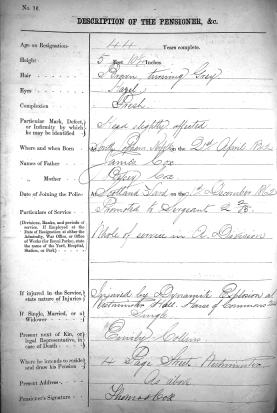 No. 16.
DESCRIPTION OF THE PENSIONER, &c.
Age on Resignation- 44 Years complete.
Height 5 Feet 10½ Inches
Hair Brown turning Grey
Eyes Hazel
Complexion Fresh
Particular Mark, Defect, or Infirmity by which he may be identified Head slightly affected
Where and when Born on the 21st April
Name of Father James Cox
" Mother
Date of Joining the Police At Scotland Yard on the December
Particulars of Service Promoted to Sergeant
(Divisions, Banks, and periods of service. If Employed at the Date of Resignation at either the Admiralty, War Office, or Office of Works (for Royal Parks), state the name of the Yard, Hospital, Station, or Park.)
Whole of service in A. Division
If injured in the Service, state nature of Injuries Injured by Dynamite Explosion at
Westminster Hall. House of Commons
If Single, Married, or a Widower Single
Present next of Kin, or legal Representative, in case of Death Emily Collins
Where he intends to reside and draw his Pension 4 Page Street Westminster
Present Address As above
Pensioner's Signature Thomas Cox